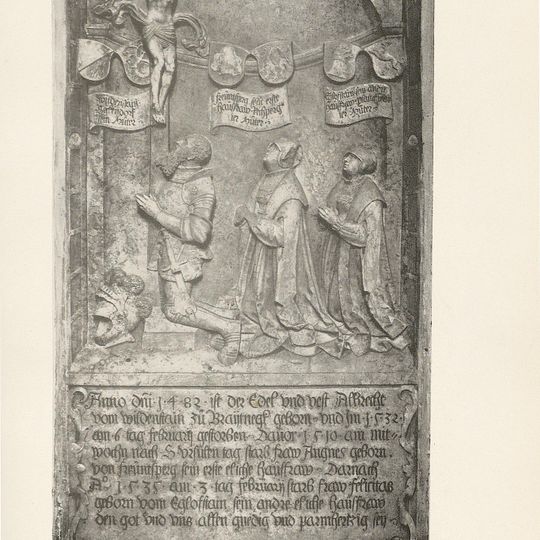 freuntsperg sein erste
hausfraw
Anno dm̄ · 1 · 4 · 82 · ist der Edel vnd vest Albrecht
vom wildenstain zu Braytnegk geborn · vnd Im · 1532 ·
am 6 tag february gestorben · Dauor 1510 am mit-
wochn nach S vrsulen tag starb fraw Angnes geborn ·
von freuntsperg sein erste eliche hausfraw · Darnach
Aᵒ · 1535 · am · 3 · tag february starb fraw felicitas
geborn vom Eglofstain sein andre eliche hausfraw ·
den got vnd vns allen gnedig vnd parmhertzig sey ·